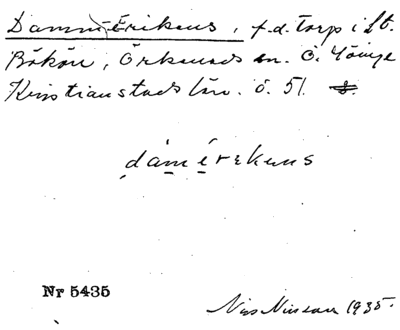 Damm-Erikens, f.d. torp i St.
Bökön, Örkeneds sn. Ö. Göinge
Kristianstads län. ö. 51.
dàmérekens
Nr 5435
Nils Nilsson 1935.